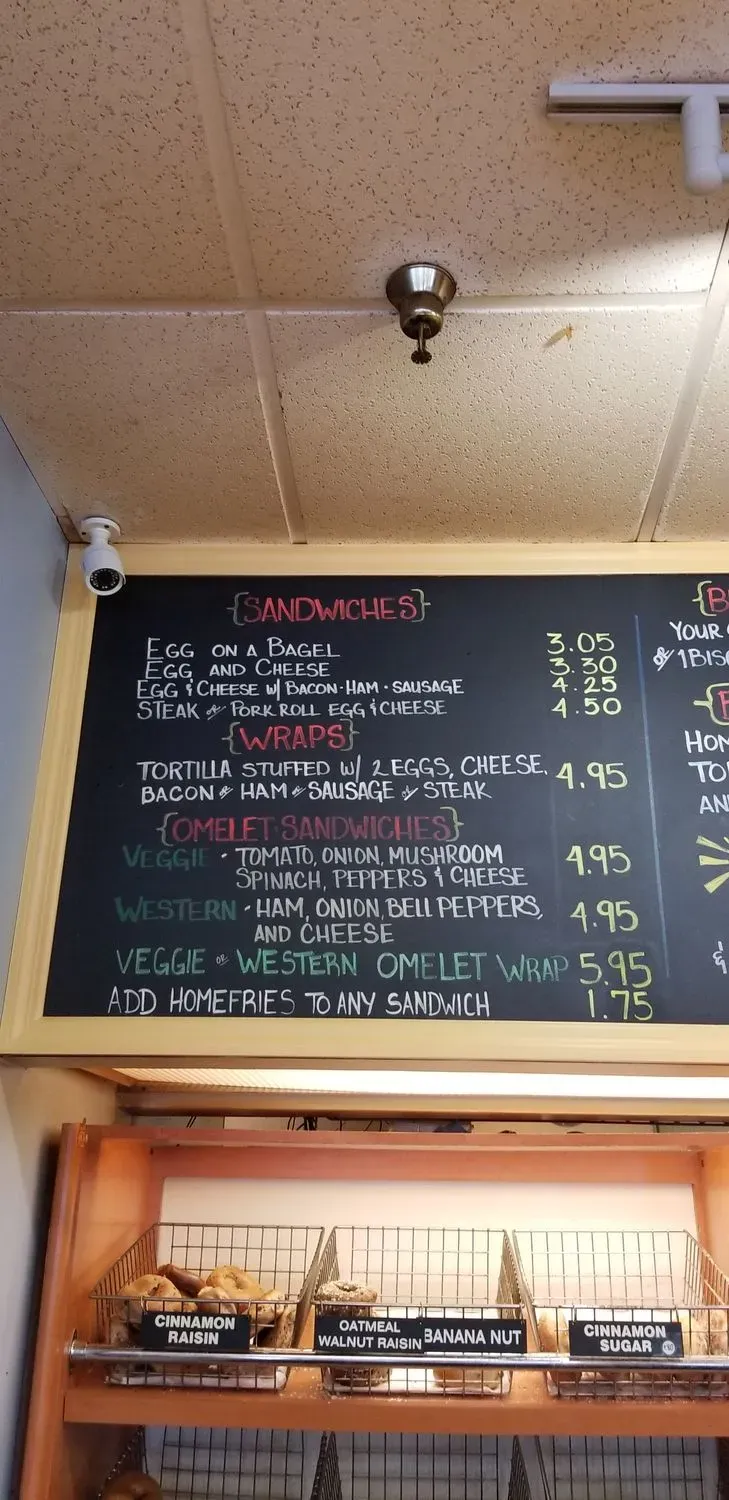 {SANDWICHES}
EGG ON A BAGEL 3.05
EGG AND CHEESE 3.30
EGG & CHEESE W/ BACON · HAM · SAUSAGE 4.25
STEAK or PORK ROLL EGG & CHEESE 4.50
{WRAPS}
TORTILLA STUFFED W/ 2 EGGS, CHEESE, 4.95
BACON or HAM or SAUSAGE or STEAK
{OMELET SANDWICHES}
VEGGIE · TOMATO, ONION, MUSHROOM 4.95
SPINACH, PEPPERS & CHEESE
WESTERN · HAM, ONION, BELL PEPPERS, 4.95
AND CHEESE
VEGGIE or WESTERN OMELET WRAP 5.95
ADD HOMEFRIES TO ANY SANDWICH 1.75
{B
YOUR
or 1 BIS
HOM
TO
AN
&
CINNAMON
RAISIN
OATMEAL
WALNUT RAISIN
BANANA NUT
CINNAMON
SUGAR